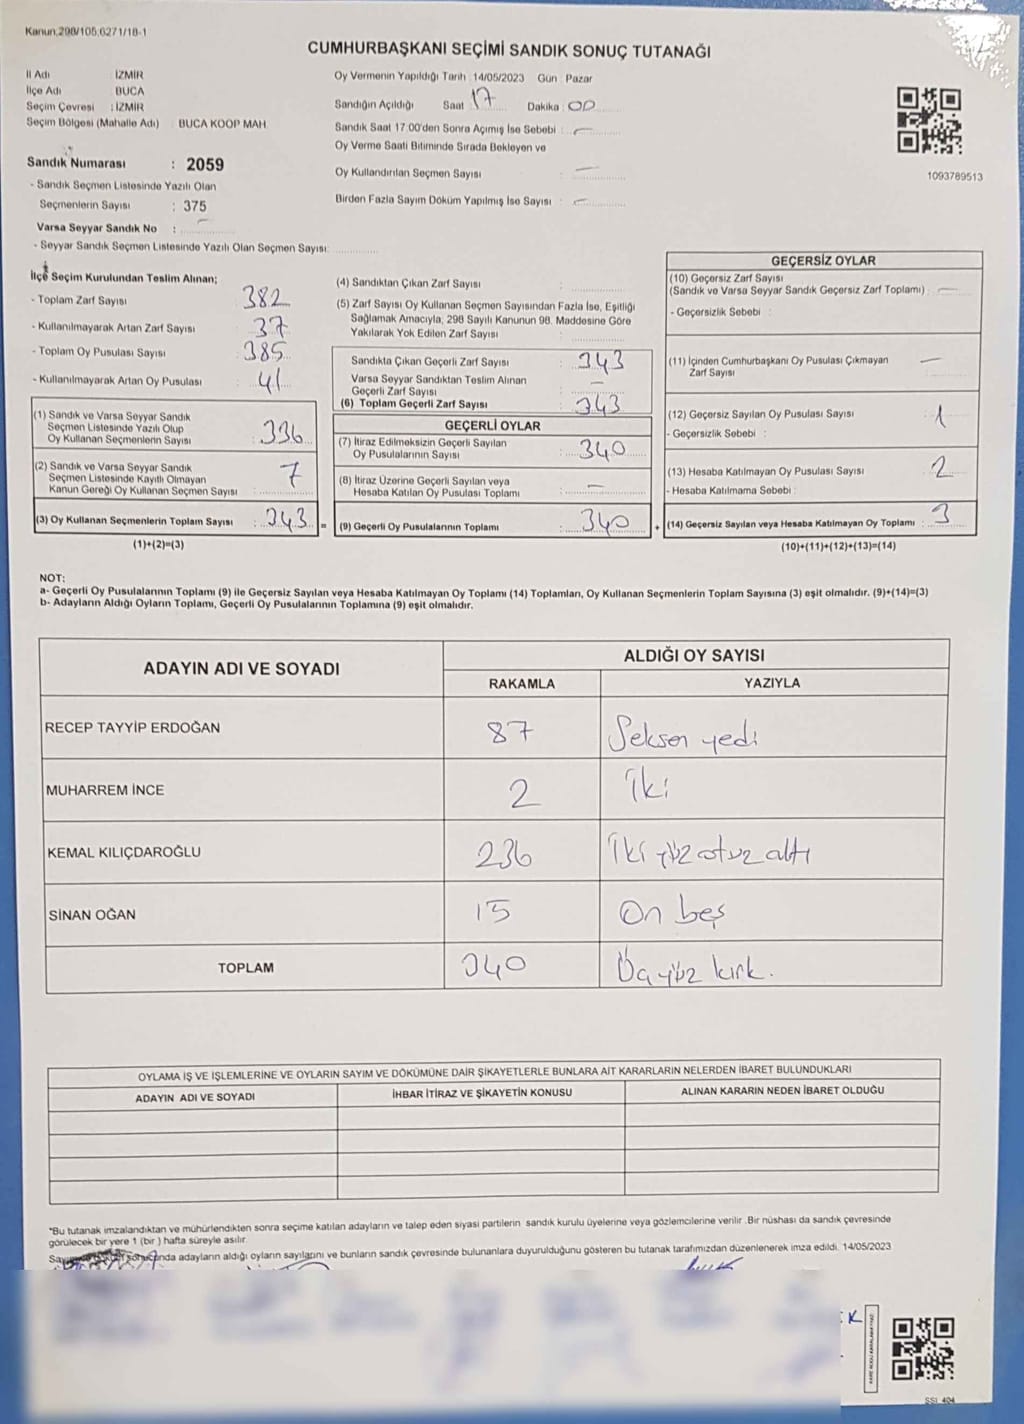 Kanun,298/105,6271/18-1
CUMHURBAŞKANI SEÇİMİ SANDIK SONUÇ TUTANAĞI
İl Adı : İZMİR
İlçe Adı BUCA
Seçim Çevresi : İZMİR
Seçim Bölgesi (Mahalle Adı) : BUCA KOOP MAH.
Sandık Numarası : 2059
- Sandık Seçmen Listesinde Yazılı Olan
Seçmenlerin Sayısı : 375
Varsa Seyyar Sandık No :
- Seyyar Sandık Seçmen Listesinde Yazılı Olan Seçmen Sayısı:
Oy Vermenin Yapıldığı Tarih : 14/05/2023 Gün : Pazar
Sandığın Açıldığı Saat : 17 Dakika : 00
Sandık Saat 17.00'den Sonra Açılmış İse Sebebi : -
Oy Verme Saati Bitiminde Sırada Bekleyen ve
Oy Kullandırılan Seçmen Sayısı : -
Birden Fazla Sayım Döküm Yapılmış İse Sayısı : -
1093789513
İlçe Seçim Kurulundan Teslim Alınan;
- Toplam Zarf Sayısı 382
- Kullanılmayarak Artan Zarf Sayısı 37
- Toplam Oy Pusulası Sayısı : 385
- Kullanılmayarak Artan Oy Pusulası : 41
(1) Sandık ve Varsa Seyyar Sandık
Seçmen Listesinde Yazılı Olup
Oy Kullanan Seçmenlerin Sayısı : 336
(2) Sandık ve Varsa Seyyar Sandık
Seçmen Listesinde Kayıtlı Olmayan
Kanun Gereği Oy Kullanan Seçmen Sayısı : 7
(3) Oy Kullanan Seçmenlerin Toplam Sayısı : 343 =
(1)+(2)=(3)
(4) Sandıktan Çıkan Zarf Sayısı :
(5) Zarf Sayısı Oy Kullanan Seçmen Sayısından Fazla İse, Eşitliği
Sağlamak Amacıyla; 298 Sayılı Kanunun 98. Maddesine Göre
Yakılarak Yok Edilen Zarf Sayısı :
Sandıkta Çıkan Geçerli Zarf Sayısı : 343
Varsa Seyyar Sandıktan Teslim Alınan
Geçerli Zarf Sayısı : -
(6) Toplam Geçerli Zarf Sayısı : 343
GEÇERLİ OYLAR
(7) İtiraz Edilmeksizin Geçerli Sayılan
Oy Pusulalarının Sayısı : 340
(8) İtiraz Üzerine Geçerli Sayılan veya
Hesaba Katılan Oy Pusulası Toplamı : -
(9) Geçerli Oy Pusulalarının Toplamı : 340 +
GEÇERSİZ OYLAR
(10) Geçersiz Zarf Sayısı
(Sandık ve Varsa Seyyar Sandık Geçersiz Zarf Toplamı) : -
- Geçersizlik Sebebi :
(11) İçinden Cumhurbaşkanı Oy Pusulası Çıkmayan
Zarf Sayısı : -
(12) Geçersiz Sayılan Oy Pusulası Sayısı : 1
- Geçersizlik Sebebi :
(13) Hesaba Katılmayan Oy Pusulası Sayısı : 2
- Hesaba Katılmama Sebebi :
(14) Geçersiz Sayılan veya Hesaba Katılmayan Oy Toplamı : 3
(10)+(11)+(12)+(13)=(14)
NOT:
a- Geçerli Oy Pusulalarının Toplamı (9) ile Geçersiz Sayılan veya Hesaba Katılmayan Oy Toplamı (14) Toplamları, Oy Kullanan Seçmenlerin Toplam Sayısına (3) eşit olmalıdır. (9)+(14)=(3)
b- Adayların Aldığı Oyların Toplamı, Geçerli Oy Pusulalarının Toplamına (9) eşit olmalıdır.
ADAYIN ADI VE SOYADI ALDIĞI OY SAYISI
RAKAMLA YAZIYLA
RECEP TAYYİP ERDOĞAN 87 Seksen yedi
MUHARREM İNCE 2 İki
KEMAL KILIÇDAROĞLU 236 İki yüz otuz altı
SİNAN OĞAN 15 On beş
TOPLAM 340 Üç yüz kırk.
OYLAMA İŞ VE İŞLEMLERİNE VE OYLARIN SAYIM VE DÖKÜMÜNE DAİR ŞİKAYETLERLE BUNLARA AİT KARARLARIN NELERDEN İBARET BULUNDUKLARI
ADAYIN ADI VE SOYADI İHBAR İTİRAZ VE ŞİKAYETİN KONUSU ALINAN KARARIN NEDEN İBARET OLDUĞU
*Bu tutanak imzalandıktan ve mühürlendikten sonra seçime katılan adayların ve talep eden siyasi partilerin sandık kurulu üyelerine veya gözlemcilerine verilir .Bir nüshası da sandık çevresinde
görülecek bir yere 1 (bir ) hafta süreyle asılır.
sonucunda adayların aldığı oyların sayılarını ve bunların sandık çevresinde bulunanlara duyurulduğunu gösteren bu tutanak tarafımızdan düzenlenerek imza edildi. 14/05/2023
SSI_404